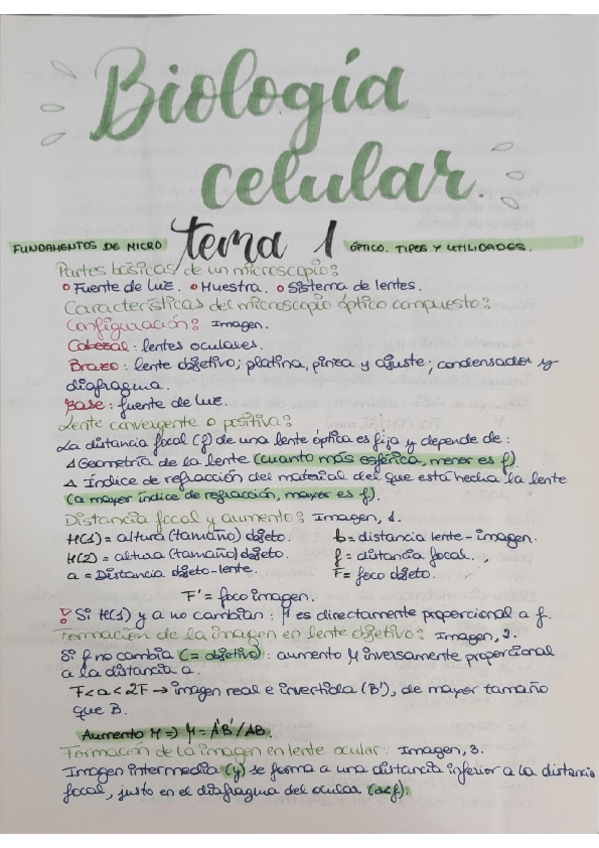 Biología
celular.
tema 1
FUNDAMENTOS DE MICRO ÓPTICO. TIPOS Y UTILIDADES.
Partes básicas de un microscopio:
Fuente de luz. Muestra. Sistema de lentes.
Características del microscopio óptico compuesto:
Configuración: Imagen.
Cabezal: lentes oculares.
Brazo: lente objetivo; platina, pinza y ajuste; condensador y
diafragma.
Base: fuente de luz.
Lente convergente o positiva:
La distancia focal (f) de una lente óptica es fija y depende de:
Δ Geometría de la lente (cuanto más esférica, menor es f).
Δ Índice de refracción del material del que está hecha la lente
(a mayor índice de refracción, mayor es f).
Distancia focal y aumento: Imagen, 1.
H(1) = altura (tamaño) objeto. b = distancia lente-imagen.
H(2) = altura (tamaño) objeto. f = distancia focal.
a = Distancia objeto-lente. F = foco objeto.
F' = foco imagen.
Si H(1) y a no cambian: M es directamente proporcional a f.
Formación de la imagen en lente objetivo: Imagen, 2.
Si f no cambia (= objetivo): aumento M inversamente proporcional
a la distancia a.
F < a < 2F → imagen real e invertida (B'), de mayor tamaño
que B.
Aumento M => M = A'B'/AB.
Formación de la imagen en lente ocular: Imagen, 3.
Imagen intermedia (y) se forma a una distancia inferior a la distancia
focal, justo en el diafragma del ocular (a<f).